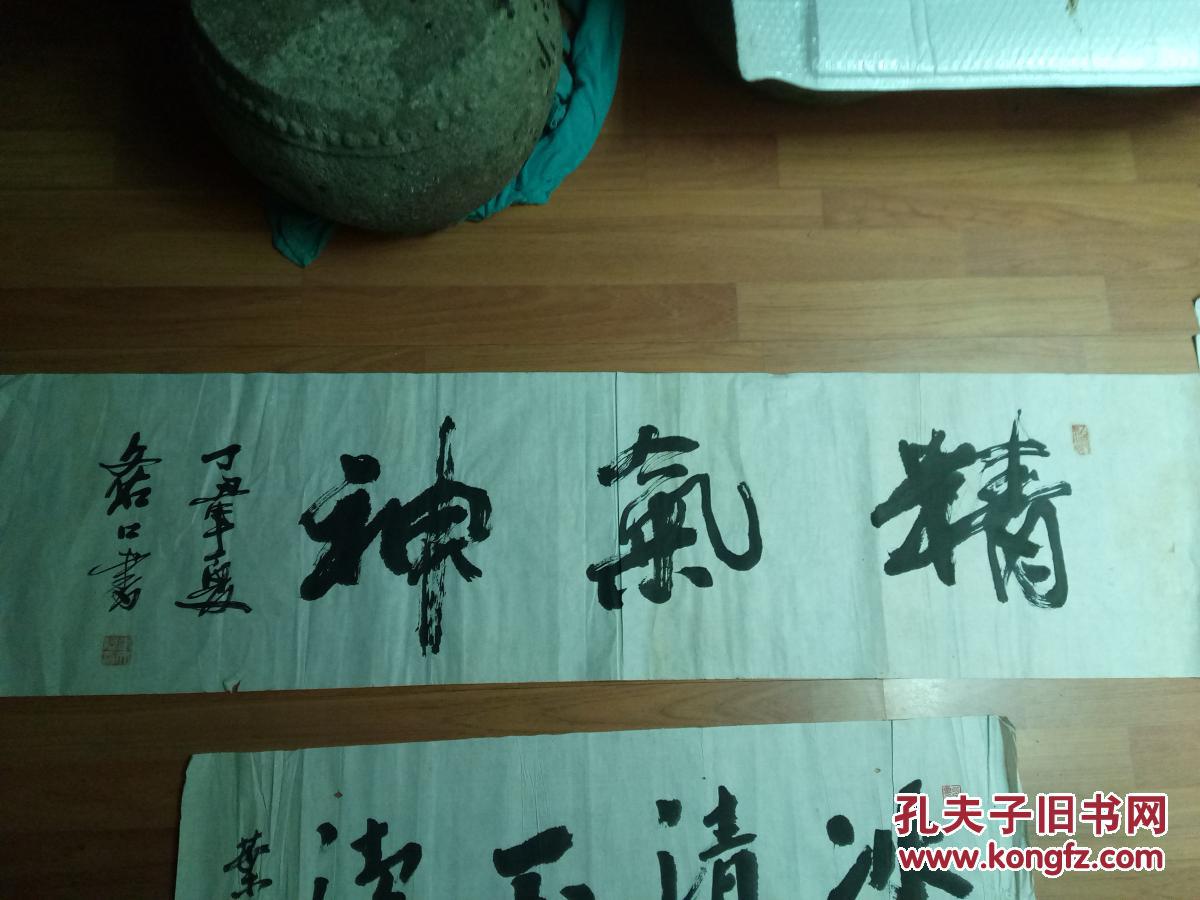 精氣神
丁丑年夏
口書
冰清玉潔
葉
孔夫子旧书网
www.kongfz.com